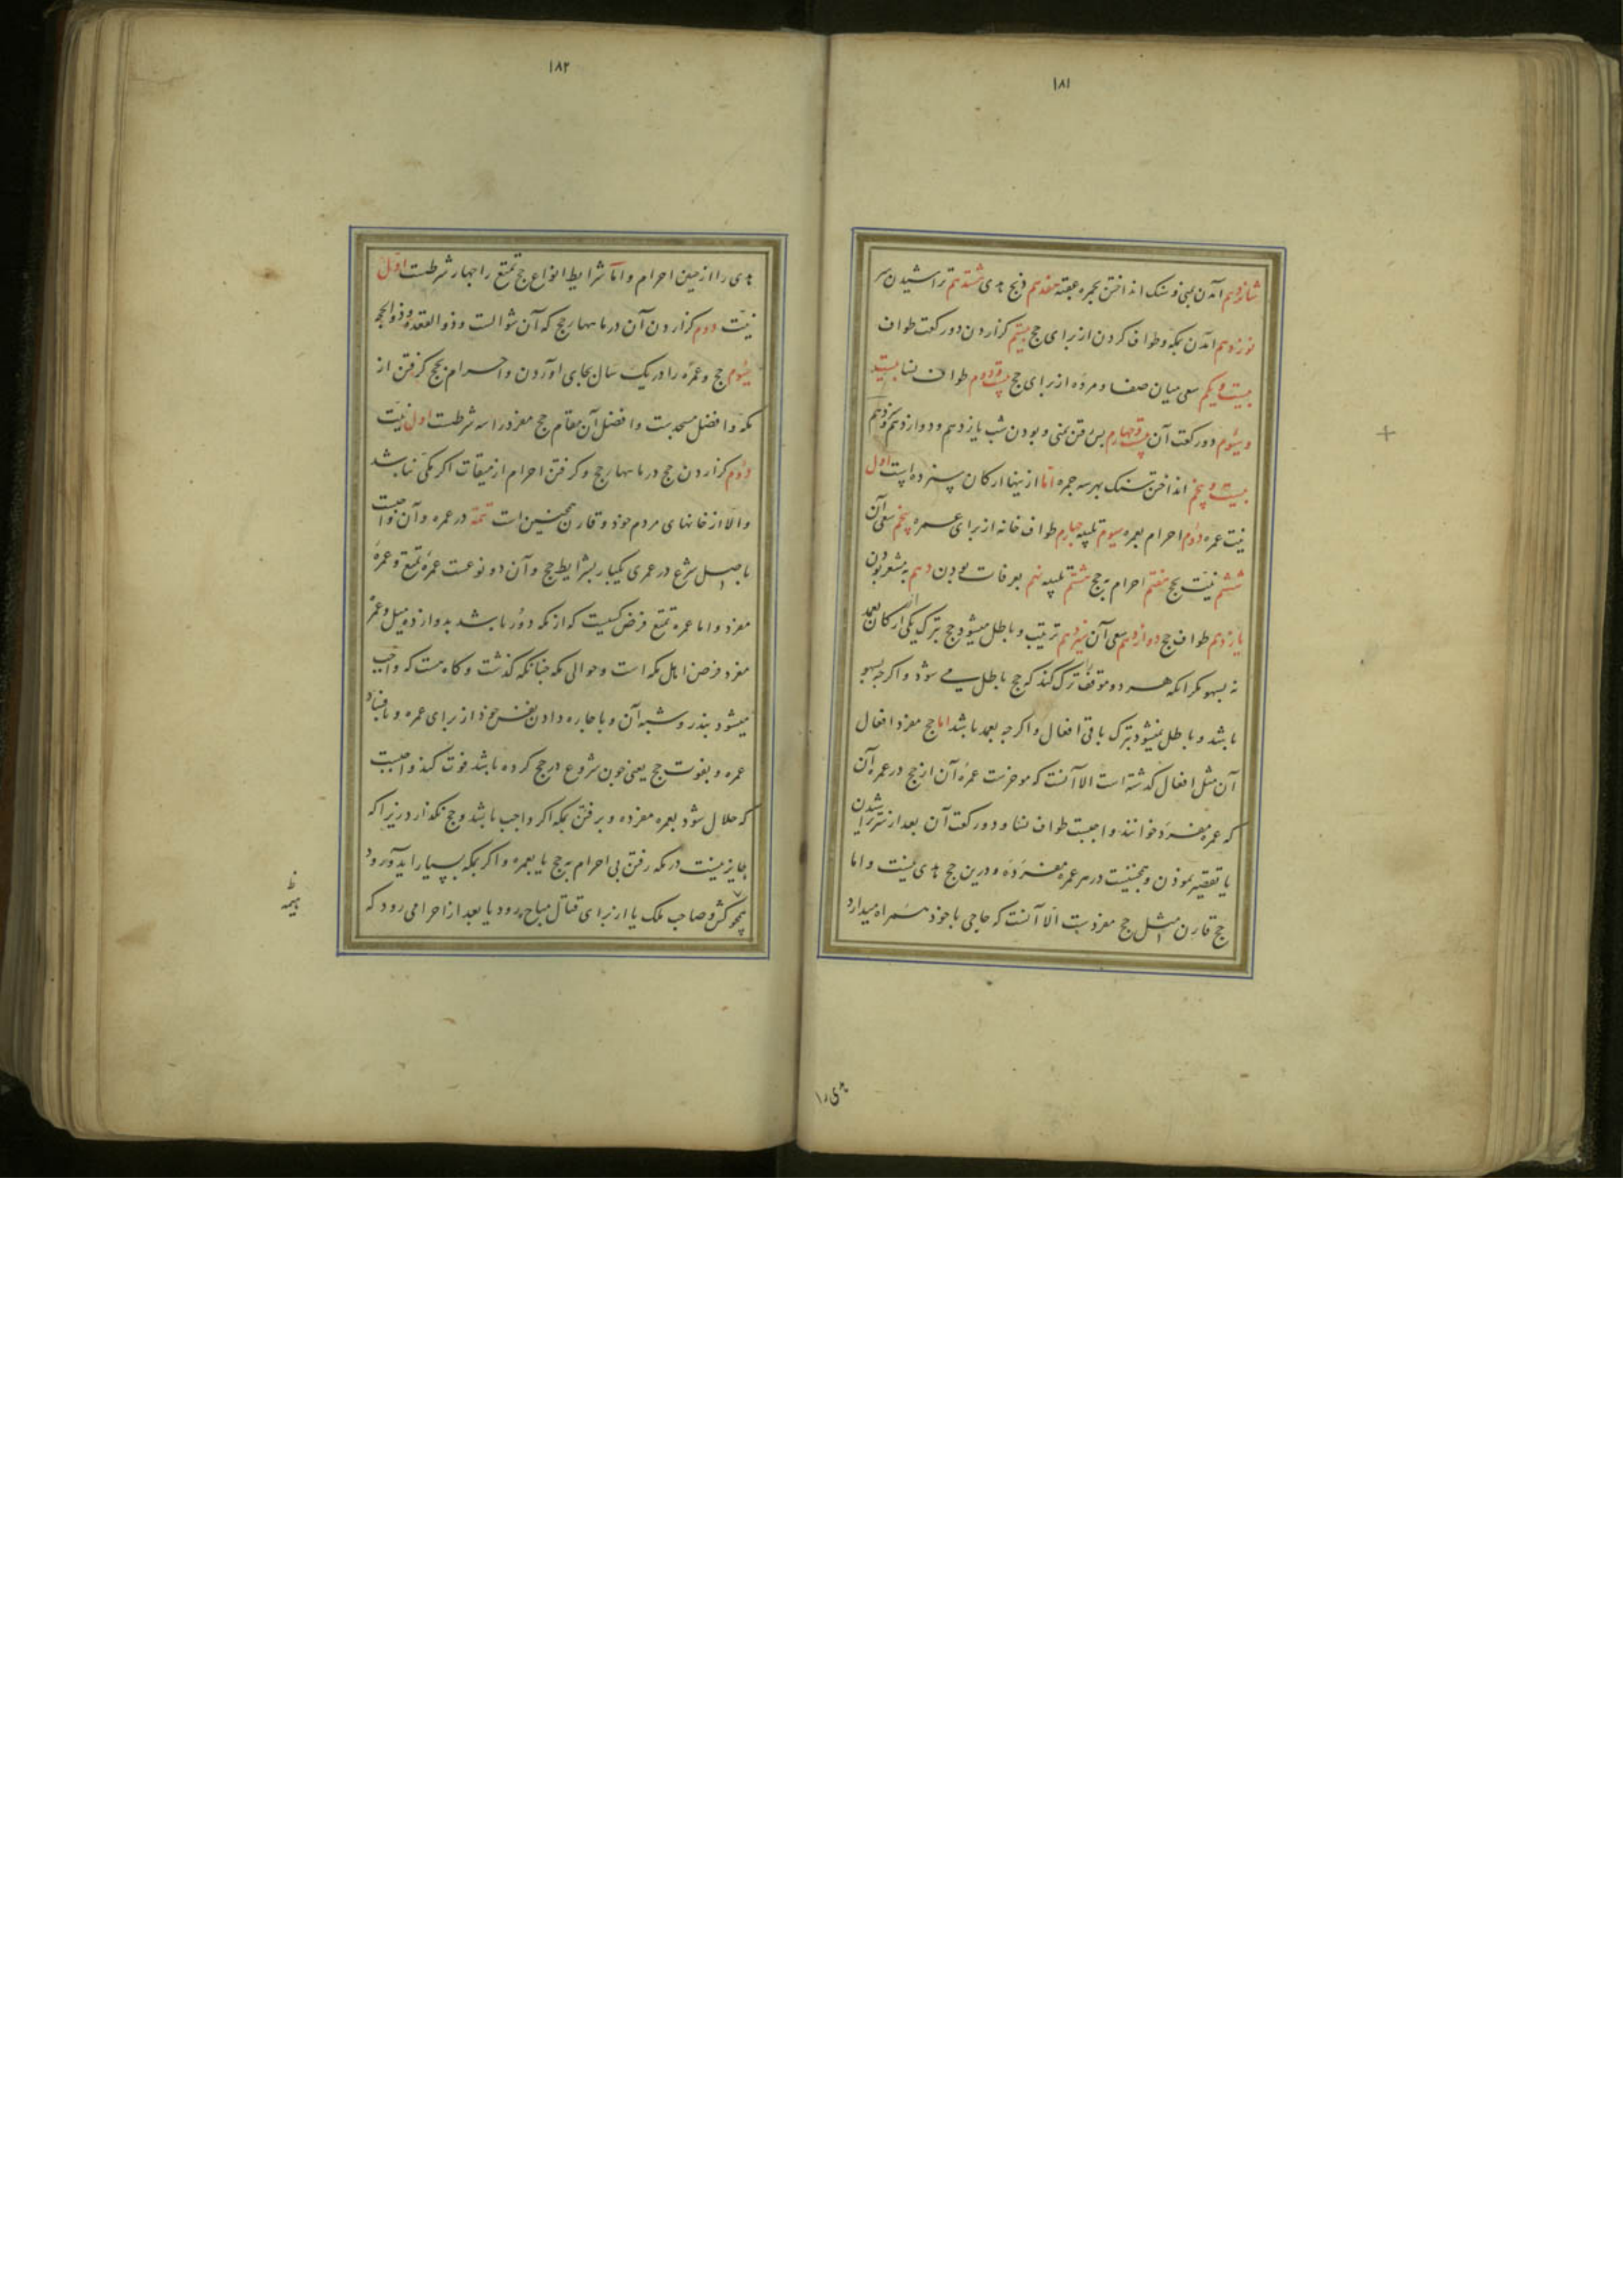 ۱۸۱
شانزدهم آمدن بمنی و سنک انداختن بجمره عقبه هفدهم ذبح هدی هشتدهم تراشیدن سر
نوزدهم آمدن بمکه و طواف کردن از برای حج بیستم کزاردن دو رکعت طواف
بیست و یکم سعی میان صفا و مروه از برای حج بیست و دوم طواف نسا بیست
و سیوم دو رکعت آن بیست و چهارم پس رفتن بمنی و بودن شب یازدهم و دوازدهم و سیزدهم
بیست و پنجم انداختن سنک بهر سه جمره اما ازینها ارکان سیزده است اول
نیت عمره دوم احرام بعمره سیوم تلبیه چهارم طواف خانه از برای عمره پنجم سعی آن
ششم نیت بحج هفتم احرام به حج هشتم تلبیه نهم بعرفات بودن دهم به مشعر بودن
یازدهم طواف حج دوازدهم سعی آن سیزدهم ترتیب و باطل میشود حج بترک یکی از ارکان بعمد
نه بسهو مکر انکه هر دو موقف را ترک کند که حج باطل می شود و اکرجه بسهو
باشد و باطل نمیشود بترک باقی افعال و اکرجه بعمد باشد اما حج مفرد افعال
آن مثل افعال کذشته است الا آنست که موخرست عمرهٔ آن از حج در عمره آن
که عمره مفرده خوانند واجبست طواف نسا و دو رکعت آن بعد از سر تراشیدن
یا تقصیر نمودن و همچنیست در هر عمره مفرده و درین حج هدی نیست و اما
حج قارن مثل حج مفردست الا آنست که حاجی با خوذ همراه میدارد
هدی را
۱۸۲
هدی را از حین احرام و اما شرایط انواع حج تمتع را جهار شرطست اول
نیت دوم کزاردن آن در ماههای حج که آن شوالست و ذوالقعده و ذوالحجه
سیوم حج و عمره را در یک سال بجای اوردن و احرام بحج کرفتن از
مکه و افضل مسجدست و افضل آن مقام حج مفرد را سه شرطست اول نیت
دوم کزاردن حج در ماههای حج و کرفتن احرام از میقات اکر مکی نباشد
و الا از خانهای مردم خوذ و قارن همچنین است تتمه در عمره و آن واجبست
باصل شرع در عمری یکبار بشرایط حج و آن دو نوعست عمرهٔ تمتع و عمرهٔ
مفرد و اما عمره تمتع فرض کسیت که از مکه دور باشد بدوازده میل و عمرهٔ
مفرد فرض اهل مکه است و حوالی مکه جنانکه کذشت و کاه هست که واجب
میشود بنذر و شبه آن و باجاره دادن نفس خوذ از برای عمره و بافساد
عمره و بفوت حج یعنی جون شروع در حج کرده باشد فوت کند واجبست
که حلال شود بعمره مفرده و برفتن بمکه اکر واجب باشد و حج نکذارد زیرا که
جایز نیست در مکه رفتن بی احرام به حج یا بعمره و اکر بمکه بسیار اید و رود
همجو و صاحب ملک یا از برای قتال مباح برود یا بعد از احرامی رود که